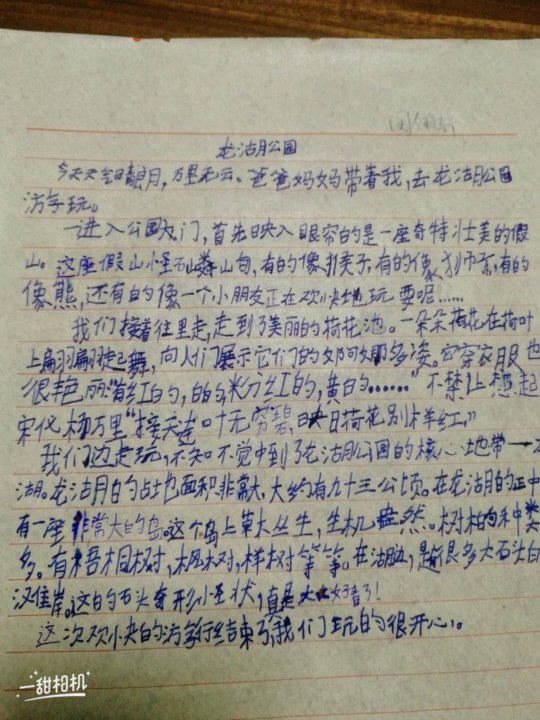 龙湖公园
今天天气晴朗,万里无云。爸爸妈妈带着我,去龙湖公园
游玩。
一进入公园大门,首先映入眼帘的是一座奇特壮美的假
山。这座假山怪石嶙峋,有的像猴子,有的像狮子,有的
像熊,还有的像一个小朋友正在欢快地玩耍呢……
我们接着往里走,走到了美丽的荷花池。一朵朵荷花在荷叶
上翩翩起舞,向人们展示它们的婀娜多姿。它穿衣服也
很艳丽:有红的,白的,粉红的,黄的……"不禁让想起
宋代杨万里"接天连叶无穷碧,日荷花别样红。"
我们边走玩,不知不觉中到了龙湖公园的核心地带一
湖。龙湖的占地面积非常大,大约有九十三公顷。在龙湖的正中
有一座非常大的岛。这个岛上草丛生,生机盎然。树的种类
多。有梧桐树,枫树,样树等等。在湖边,是很多大石头
汉住岸。这的石头奇形怪状,真是太好看了!
这次欢快的游行结束了,我们玩的很开心。
一甜相机